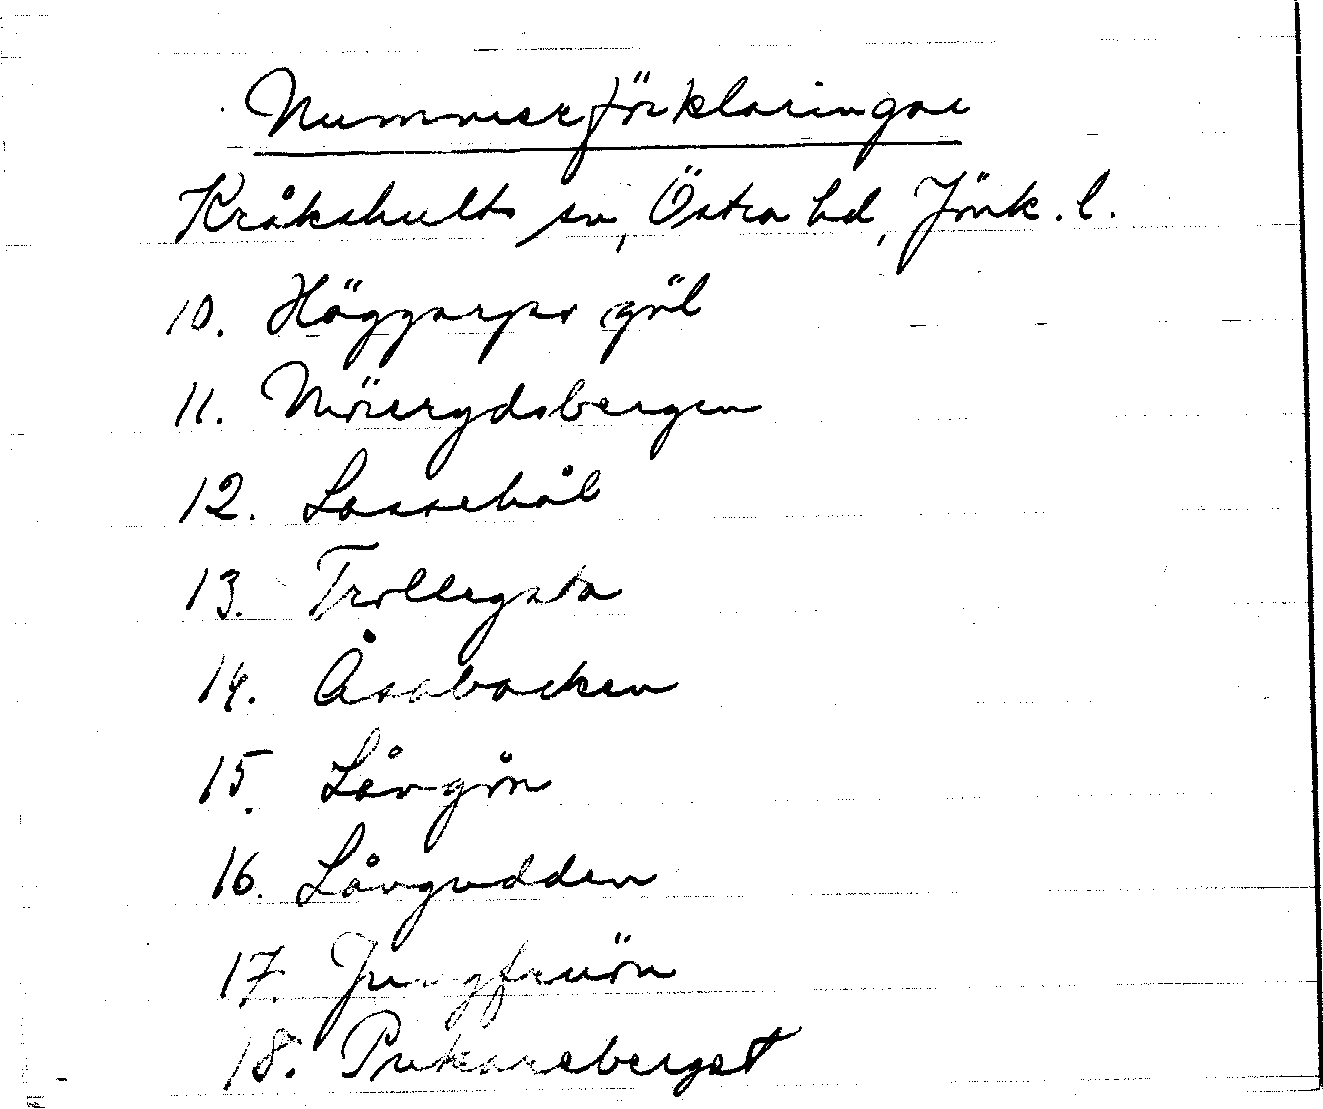 Nummerförklaringar
Kråkshults sn, Östra hd, Jönk. l.
10. Häggarps göl
11. Mörerydsbergen
12. Lassehål
13. Trollegata
14. Åsabacken
15. Långön
16. Långudden
17. Jungfruön
18. Pukareberget